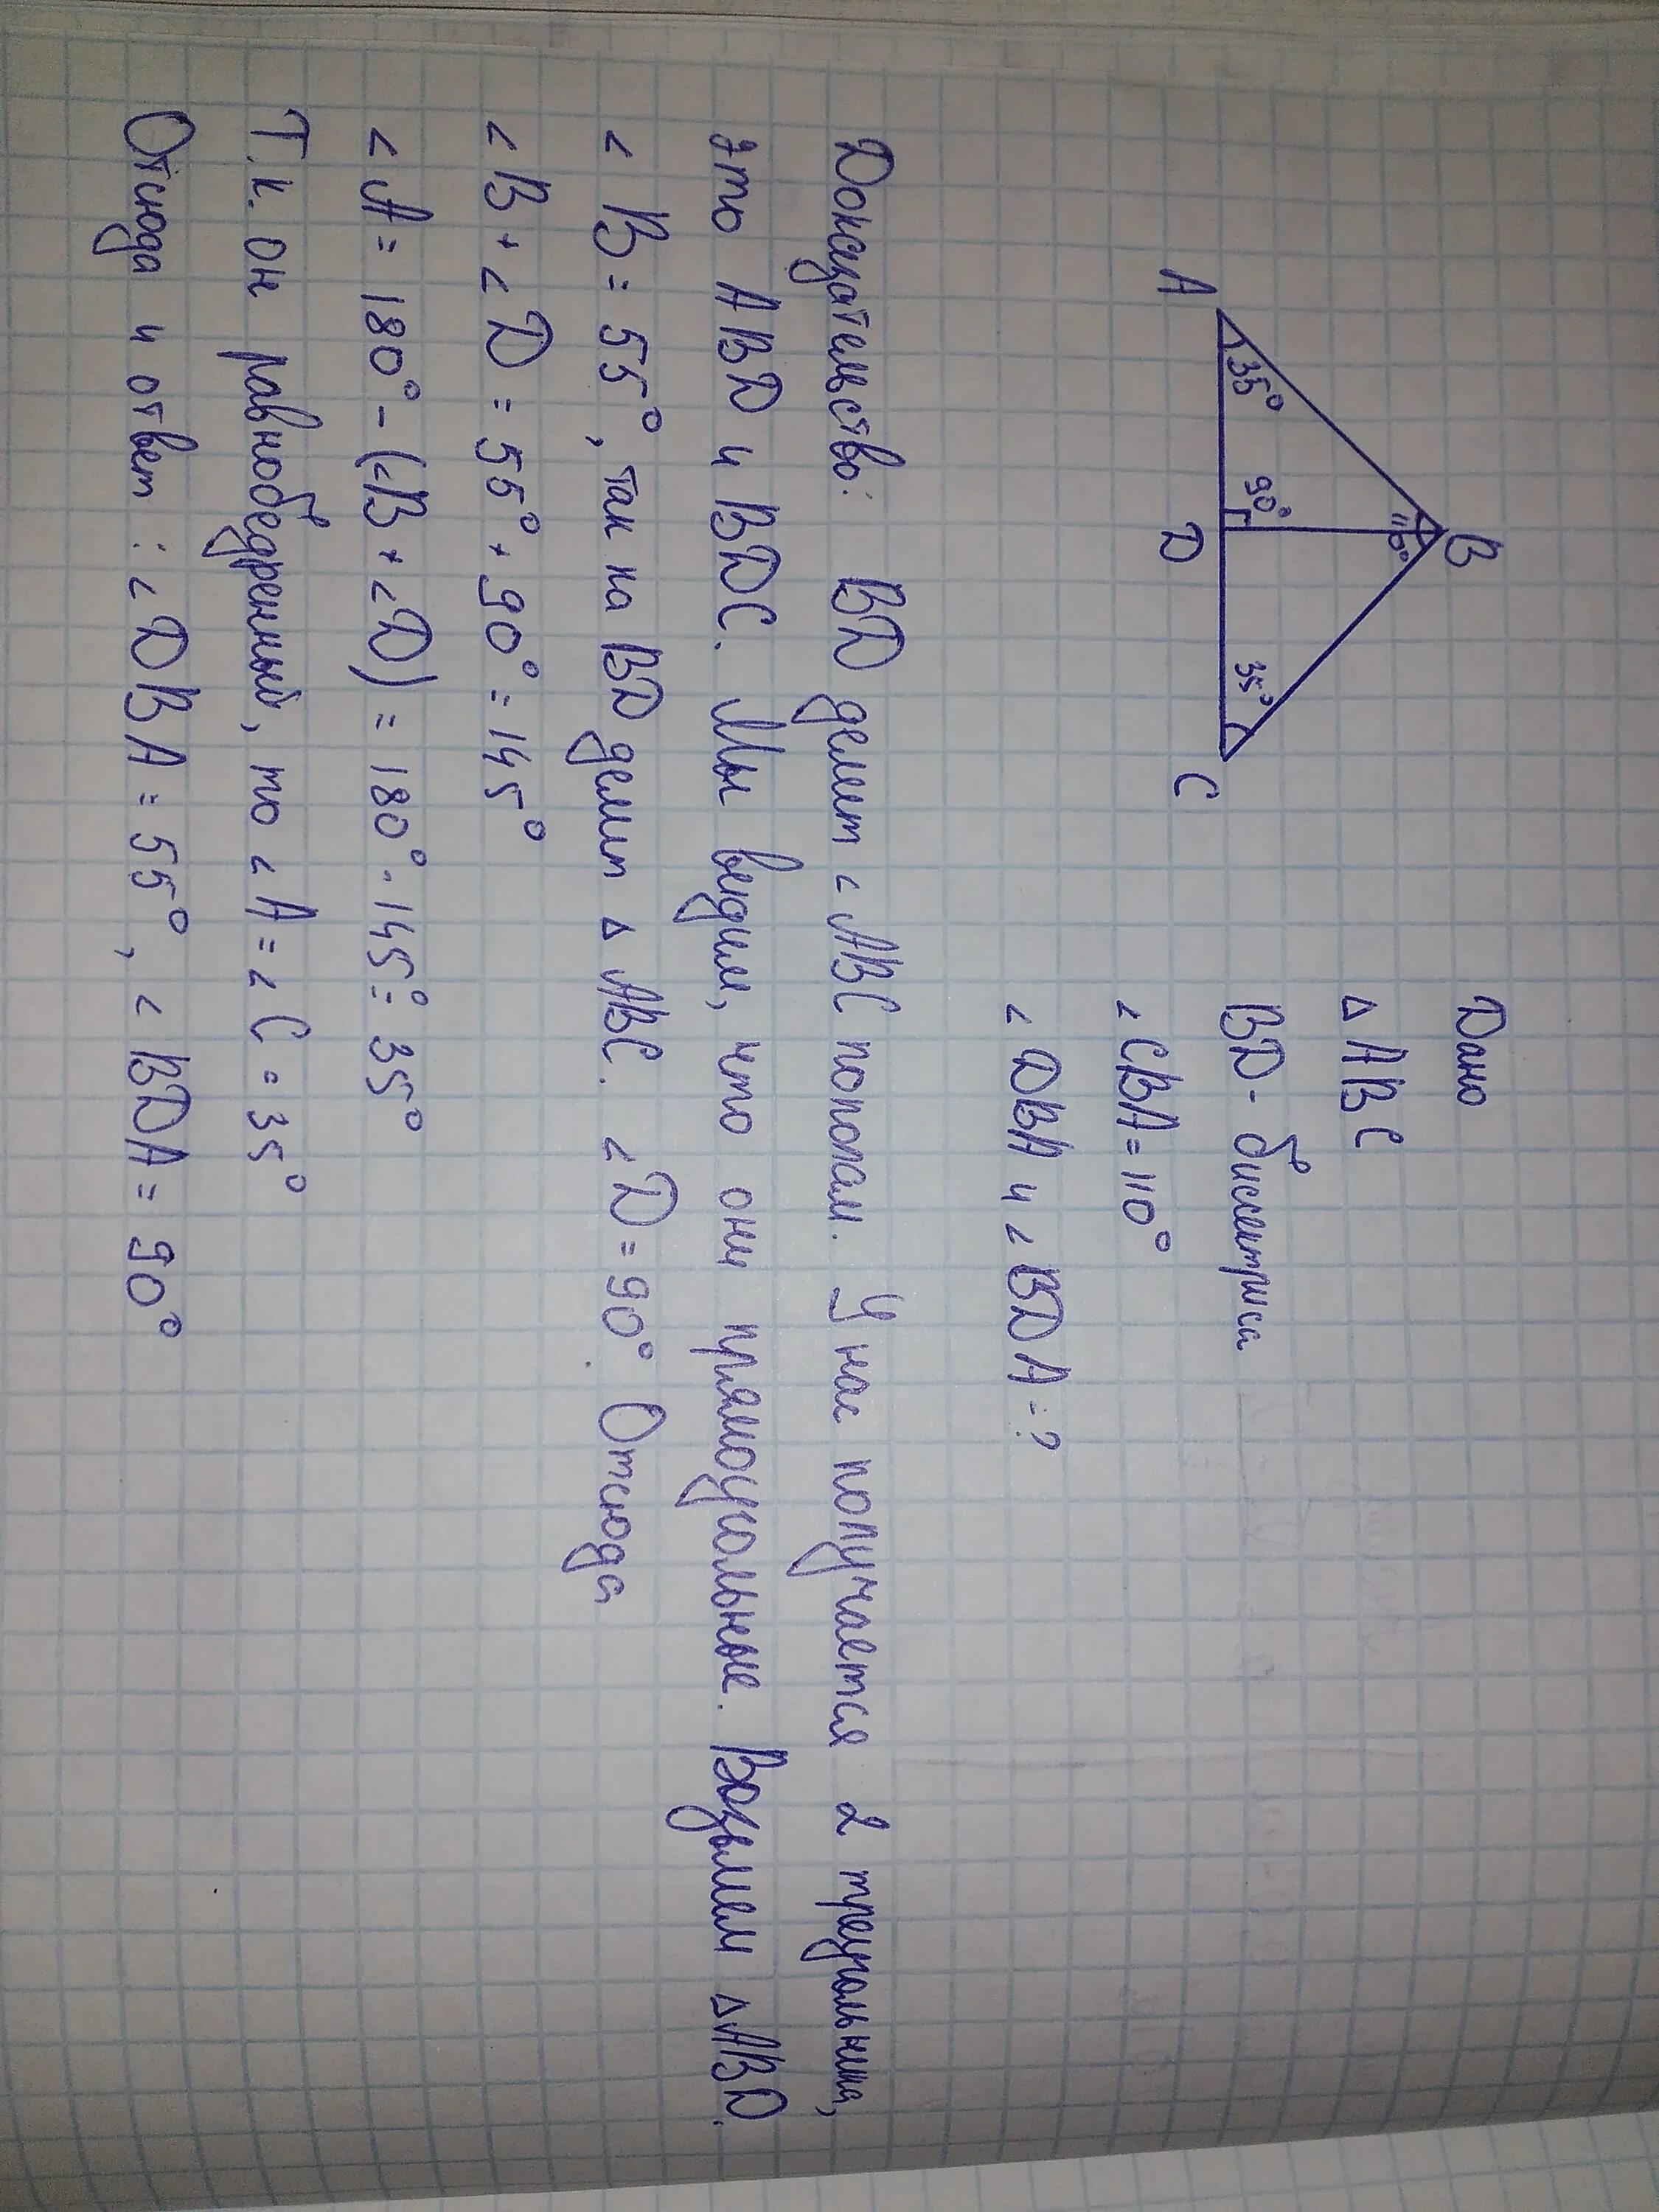 Дано
△ ABC
BD - биссектриса
∠CBA = 110°
∠ DBA и ∠ BDA = ?
B
110°
A
35°
90°
35°
D
C
Доказательство: BD делит ∠ ABC пополам. У нас получается 2 треугольника,
это ABD и BDC. Мы видим, что они прямоугольные. Возьмем △ABD.
∠ B = 55°, так ка BD делит △ ABC. ∠D = 90°. Отсюда
∠ B + ∠ D = 55° + 90° = 145°
∠ A = 180° - (∠B + ∠D) = 180° - 145° = 35°
Т.к. он равнобедренный, то ∠ A = ∠ C = 35°
Отсюда и ответ : ∠ DBA = 55°, ∠ BDA = 90°